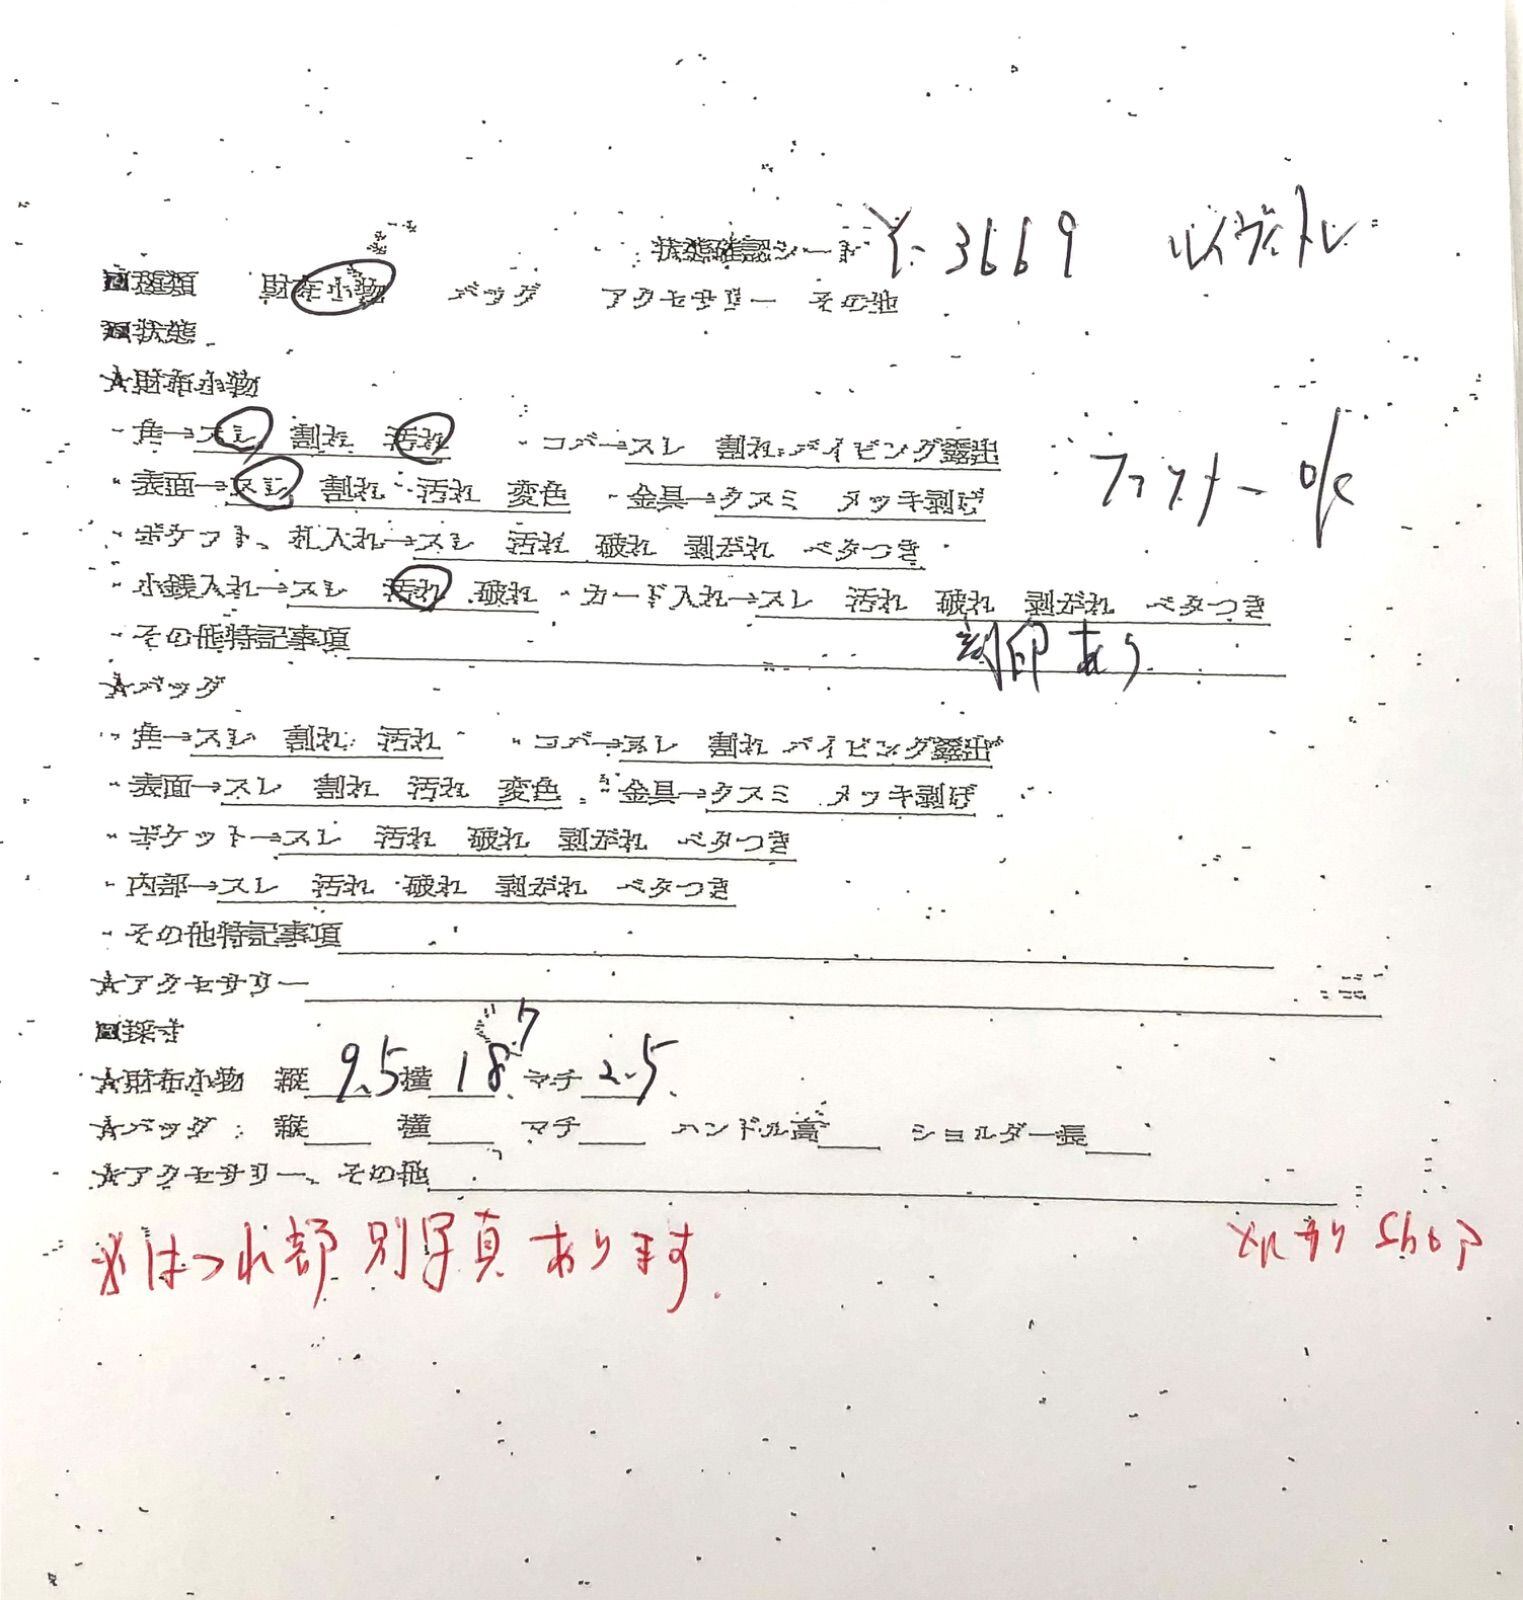 状態確認シート Y-3669 ルイヴィトン
■種類 財布小物 バッグ アクセサリー その他
■状態
★財布小物
・角→スレ 割れ 汚れ ・コバ→スレ 割れ パイピング露出
・表面→スレ 割れ 汚れ 変色 ・金具→クスミ メッキ剥げ ファスナー o/k
・ポケット、札入れ→スレ 汚れ 破れ 剥がれ ベタつき
・小銭入れ→スレ 汚れ 破れ ・カード入れ→スレ 汚れ 破れ 剥がれ ベタつき
・その他特記事項 刻印あり
★バッグ
・角→スレ 割れ 汚れ ・コバ→スレ 割れ パイピング露出
・表面→スレ 割れ 汚れ 変色 ・金具→クスミ メッキ剥げ
・ポケット→スレ 汚れ 破れ 剥がれ ベタつき
・内部→スレ 汚れ 破れ 剥がれ ベタつき
・その他特記事項
★アクセサリー
■採寸
★財布小物 縦 9.5 横 18.7 マチ 2.5
★バッグ 縦 横 マチ ハンドル高 ショルダー長
★アクセサリー、その他
※ほつれ部別写真あります.
shop